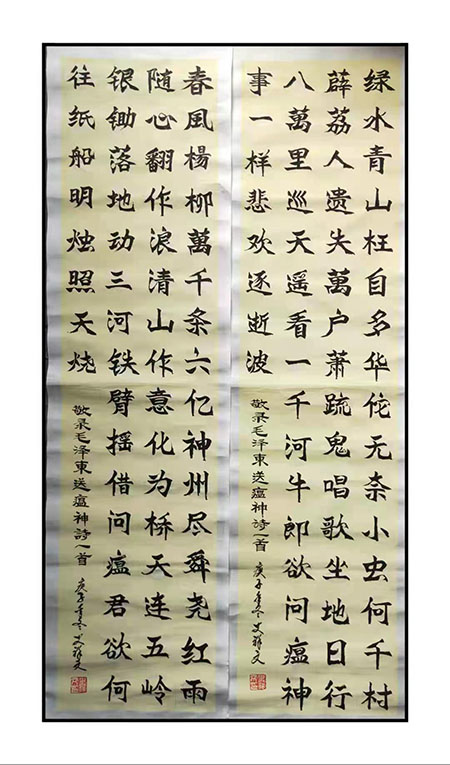 绿水青山枉自多华佗无奈小虫何千村
薜荔人遗失萬户萧疏鬼唱歌坐地日行
八萬里巡天遥看一千河牛郎欲问瘟神
事一样悲欢逐逝波
敬录毛泽東送瘟神詩一首
庚子年冬
春風楊柳萬千条六亿神州尽舜尧红雨
随心翻作浪清山作意化为桥天连五岭
银锄落地动三河铁臂摇借问瘟君欲何
往纸船明烛照天烧
敬录毛泽東送瘟神詩一首
庚子年冬